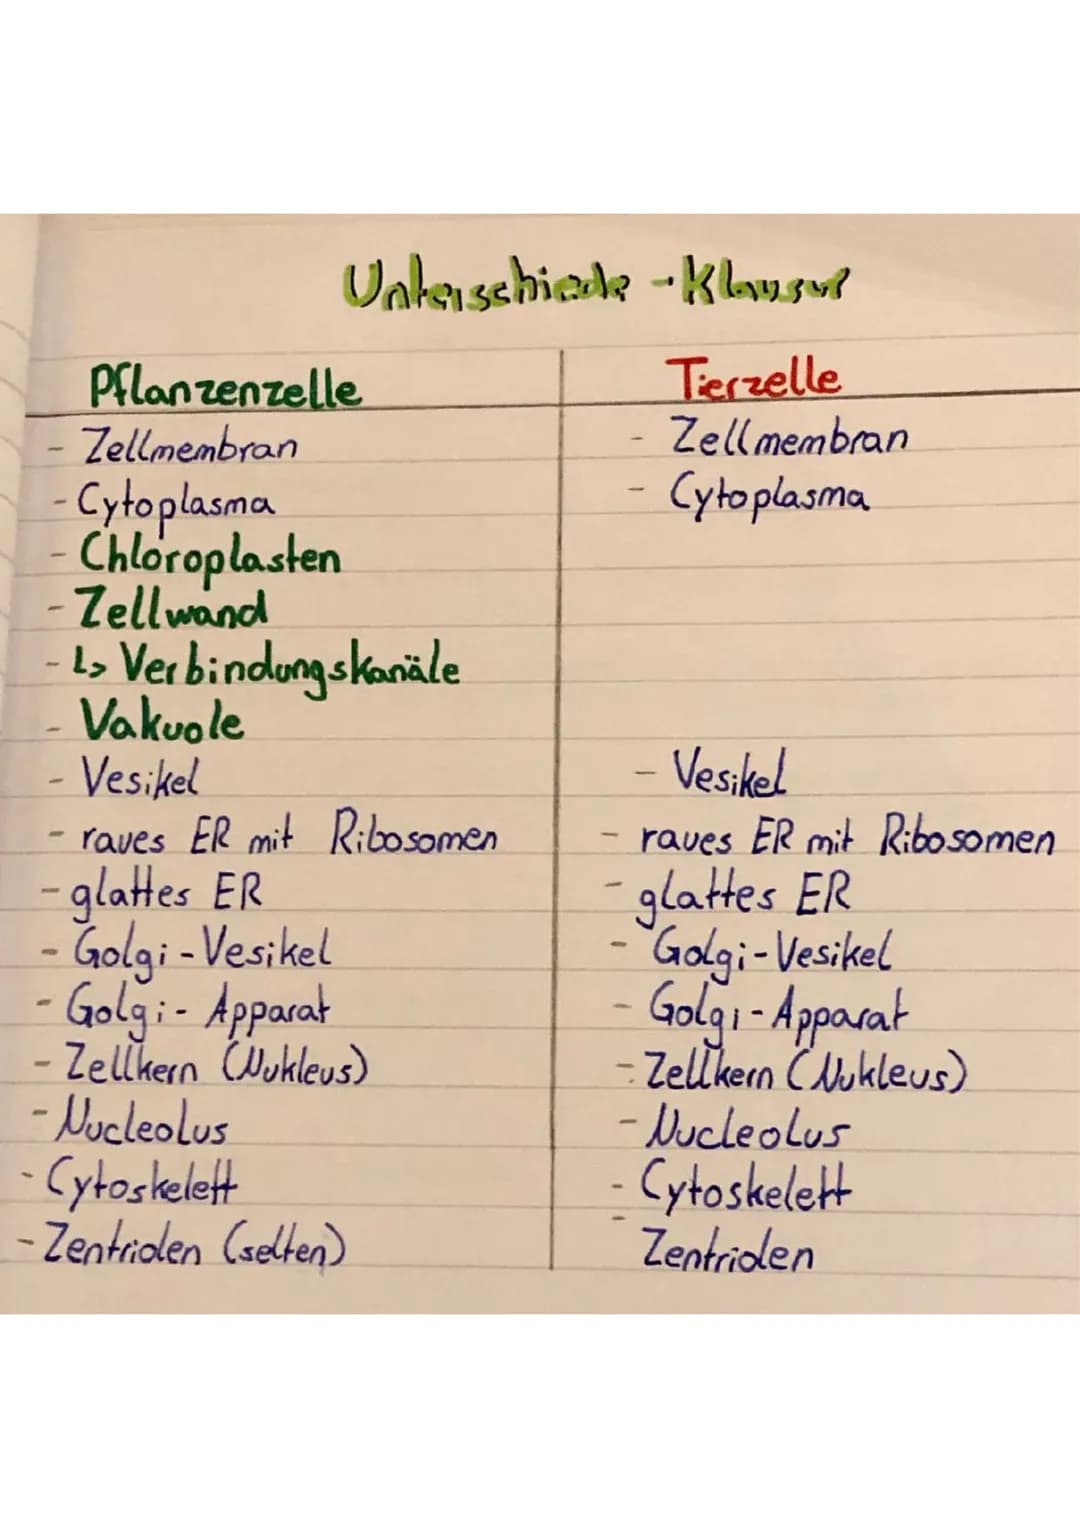 Unterschiede - Klausur
Pflanzenzelle
Tierzelle
- Zellmembran
- Zellmembran
- Cytoplasma
- Cytoplasma
- Chloroplasten
- Zellwand
- ↳ Verbindungskanäle
- Vakuole
- Vesikel
- Vesikel
- raues ER mit Ribosomen
- raues ER mit Ribosomen
- glattes ER
- glattes ER
- Golgi-Vesikel
- Golgi-Vesikel
- Golgi-Apparat
- Golgi-Apparat
- Zellkern (Nukleus)
- Zellkern (Nukleus)
- Nucleolus
- Nucleolus
- Cytoskelett
- Cytoskelett
- Zentriolen (selten)
- Zentriolen